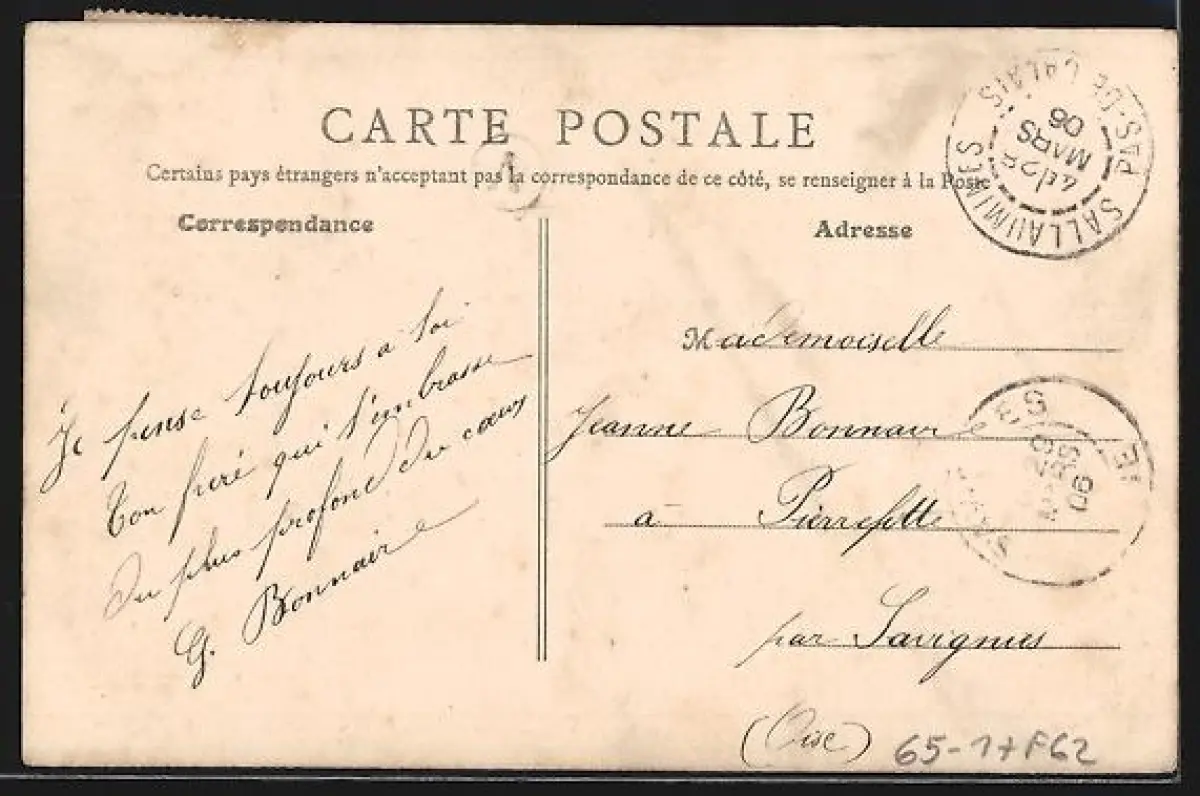 CARTE POSTALE
Certains pays étrangers n'acceptant pas la correspondance de ce côté, se renseigner à la Poste
Correspondance
Adresse
PAS-DE-CALAIS
SALLAUMINES
MARS
06
Je pense toujours a toi
Ton frère qui t'embrasse
du plus profond du cœur
G. Bonnaire
Mademoiselle
Jeanne Bonnaire
à Pierrefitte
par Savignies
(Oise)
65-17F62